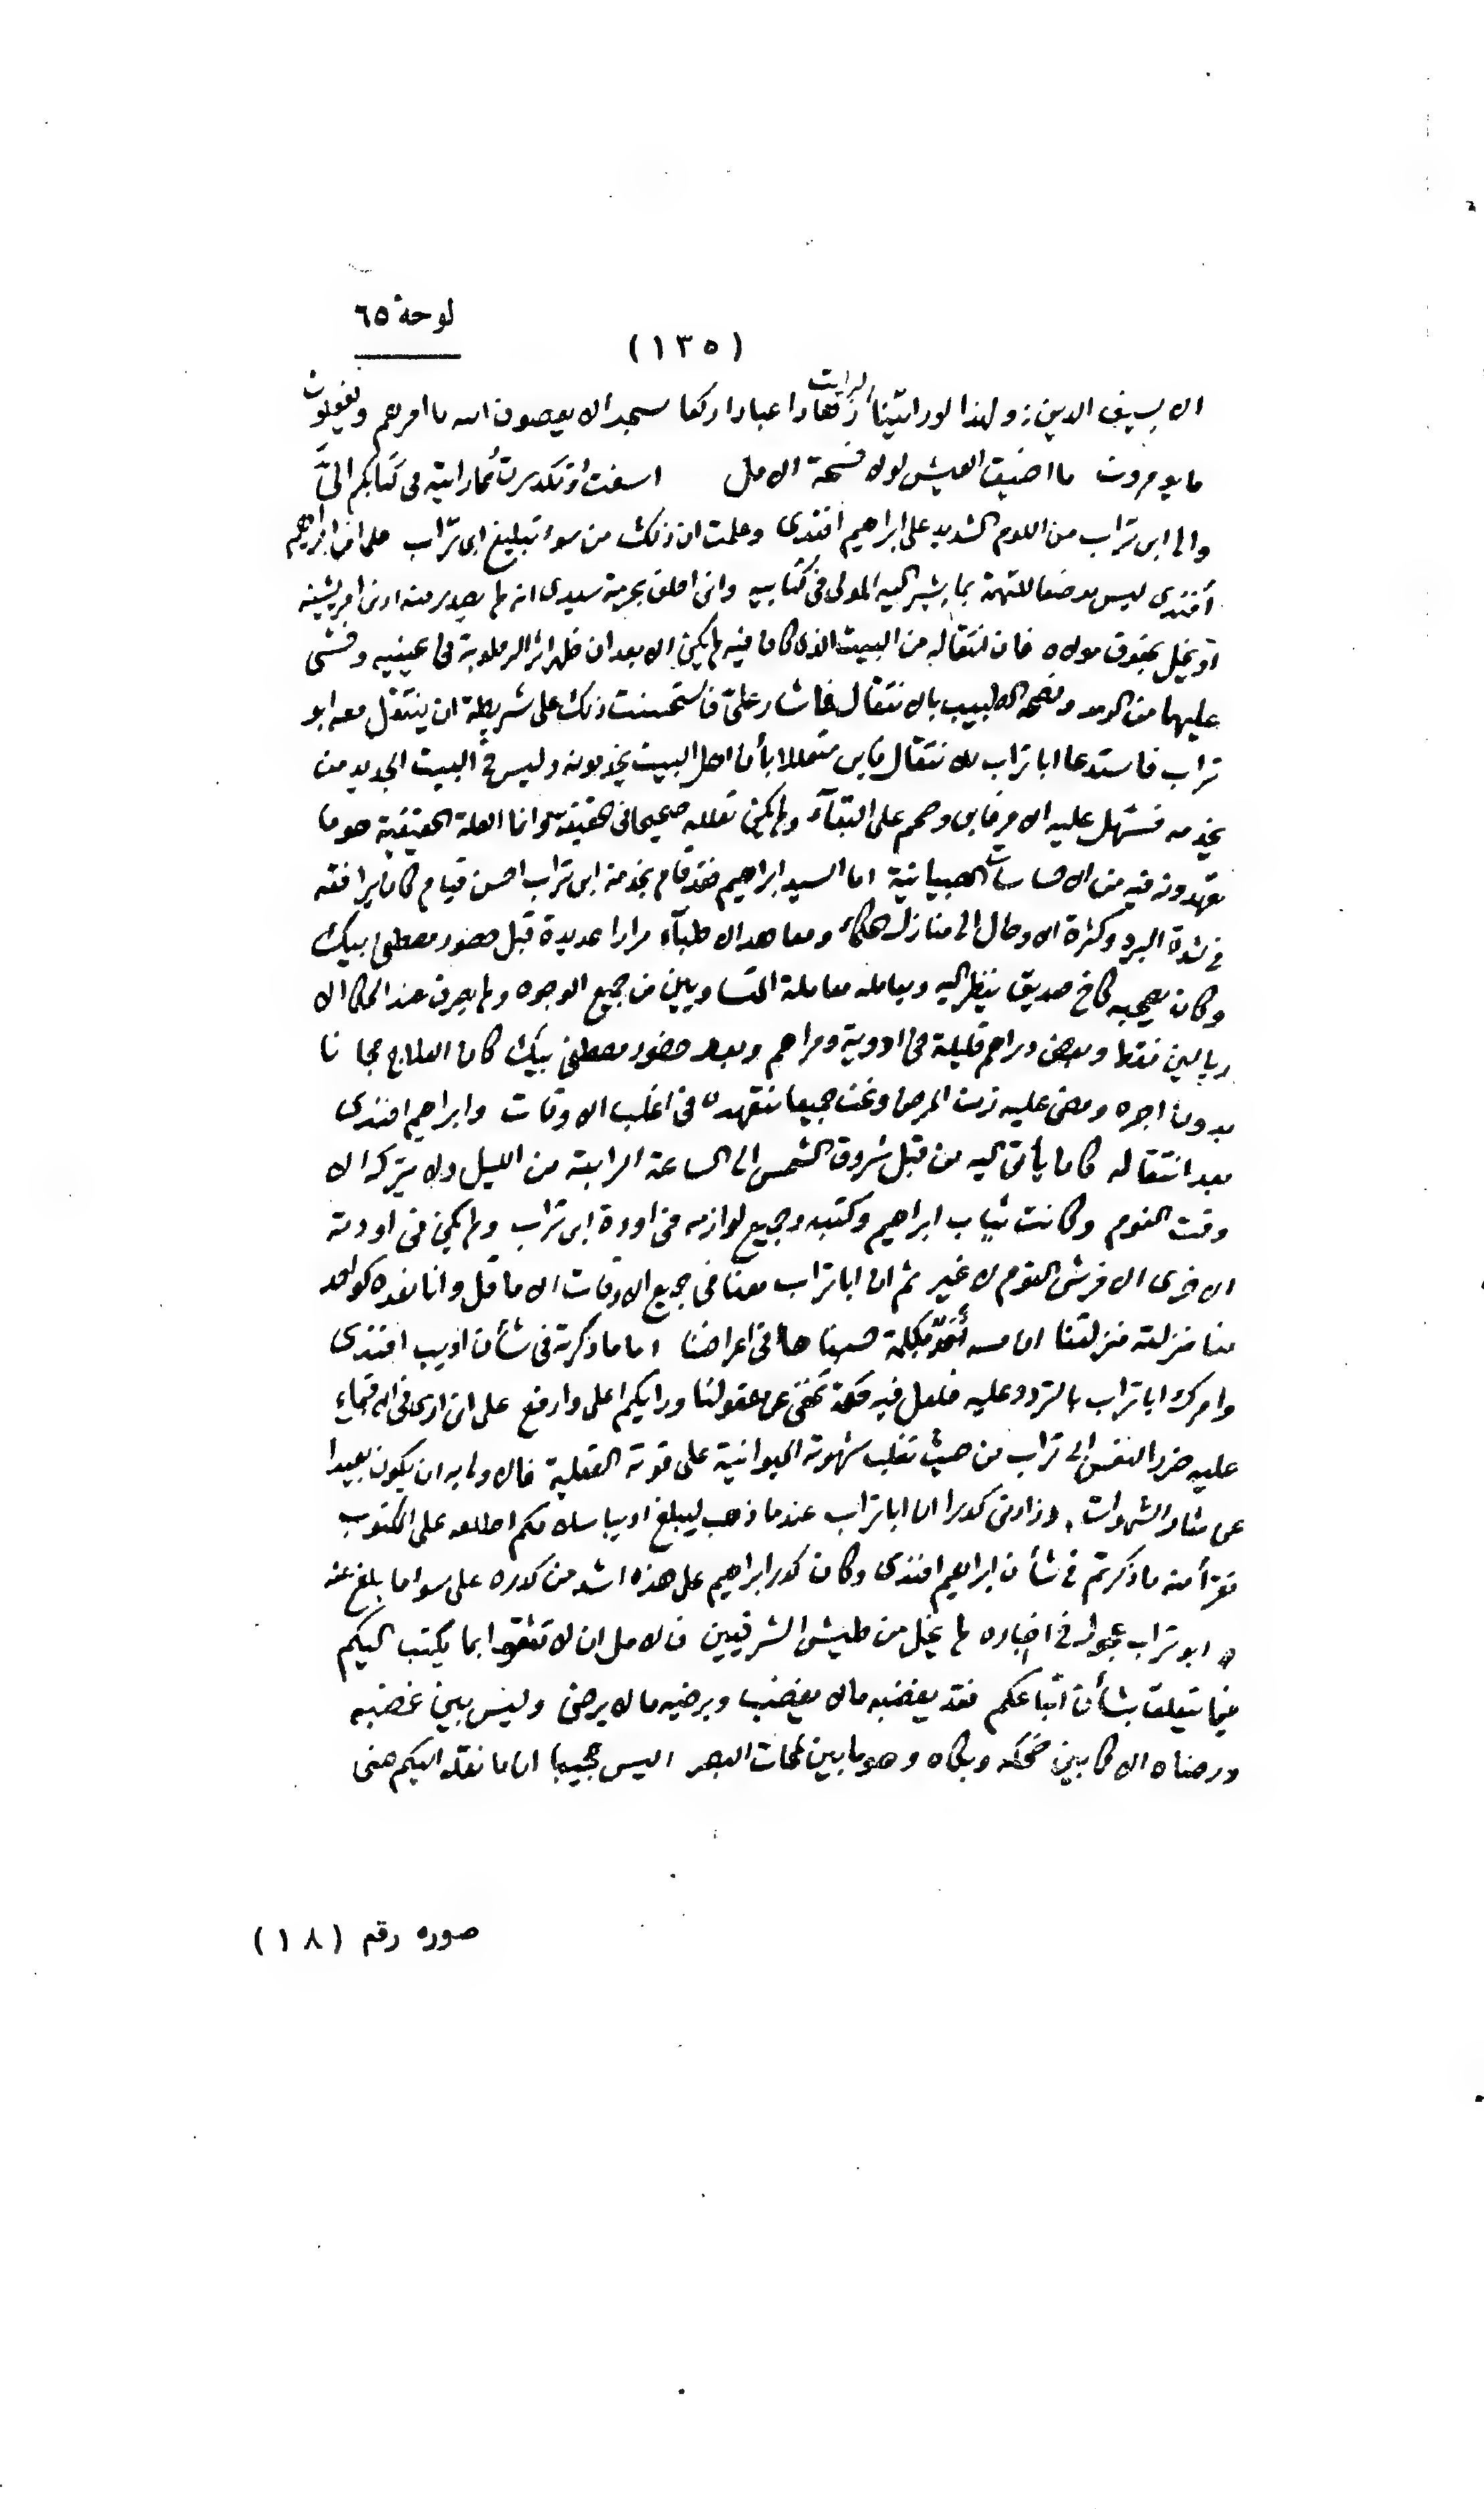 لوحة ٦٥
(١٣٥)
الا بسيف الدين : ولهذا لو رايتنا لرايت زهادا عبادا ركعا سجدا لا يعصون الله ما امرهم ويفعلون
ما يومرون ما اضيق العيش لولا فسحة الامل اسفت وتكدرت مما رايته فى كتابكم الىّ
والى ابى تراب من اللوم الشديد على ابراهيم افندى وعلمت ان ذلك من سوء تبليغ ابى تراب على ان ابراهيم
أفندى ليس موضعا للتهمة بما يشير اليه المولى فى كتابيه وانى احلف بحرمة سيدى انه لم يصدر منه ادنى امر يشينه
او يخل بحقوق مولاه فان انتقاله من البيت الذى كان فيه لم يكن الا بعد ان ظهر اثر الرطوبة فى عينيه وخشى
عليهما من الرمد ونصحه الطبيب بالانتقال فاشار علىّ فاستحسنت ذلك على شريطة ان ينتقل معه ابو
تراب فاستدعا ابا تراب للانتقال فابى متعللا بأن اهل البيت يخدمونه وليس فى البيت الجديد من
يخدمه فسهل عليه الامر فابى وصمم على البقآء ولم يكن تعلله صحيحا فى الحقيقة وانما العلة الحقيقية هو ما
تعهدونه فيه من الاحساسات الصبيانية اما السيد ابراهيم فقد قام بخدمة ابى تراب احسن قيام كان يرافقه
فى شدة البرد وكثرة الاوحال الى منازل الحكماء ومعاهد الاطبآء مرارا عديدة قبل حضور مصطفى بيك
وكان يصحبه كاخ صديق ينظر اليه ويعامله معاملة المتساويين من جميع الوجوه ولم يصرف عند الحكما الا
ريالين فقط وبعض دراهم قليلة فى ادوية ومراهم وبعد حضور مصطفى بيك كان العلاج مجانا
بدون اجره ومضى عليه زمن المرض ونحن جميعا نتعهده فى اغلب الاوقات وابراهيم افندى
بعد انتقاله كان يأتى اليه من قبل شروق الشمس الى الساعة الرابعة من الليل ولا يتركه الا
وقت النوم وكانت ثياب ابراهيم وكتبه وجميع لوازمه فى اودة ابى تراب ولم يكن فى اودته
الاخرى الا فرش النوم لا غير ثم ان ابا تراب معنا فى جميع الاوقات الا ما قل وانا نعده كواحد
منا منزلته منزلتنا ان مسه أحدٌ بكلمة حسبناها فى اعراضنا اما ما ذكرته فى شأن اديب افندى
وامرك ابا تراب بالتردد عليه فلعل فيه حكمة تخفى عن عقولنا ورايكم اعلى وارفع على انى ارى فى
عليه ضرر النفس ابى تراب من حيث تغلب شهوته الحيوانية على قوته العقلية فالاولى به ان يكون بعيدا
عن مثار الشهوات . وزادنى كدرا ان ابا تراب عندما ذهب ليبلغ اديبا سلامكم اطلعه على المكتوب
فقرأ منه ما ذكرتم فى شأن ابراهيم افندى وكان كدر ابراهيم على هذه اشد من كدره على سوء ما بلغ عنه
ابو تراب عجول فى اخباره لم يخل من طيش الشرقيين فالامل ان لا تثقوا بما يكتب اليكم
فيما يتعلق بشأن اتباعكم فقد يغضبه ما لا يغضب ويرضيه ما لا يرضى وليس بين غضبه
ورضاه الا كما بين ضحكه وبكاه وهو ما بين لمحات البصر اليس عجيبا ان ما نقله اليكم عنى
صوره رقم (١٨)